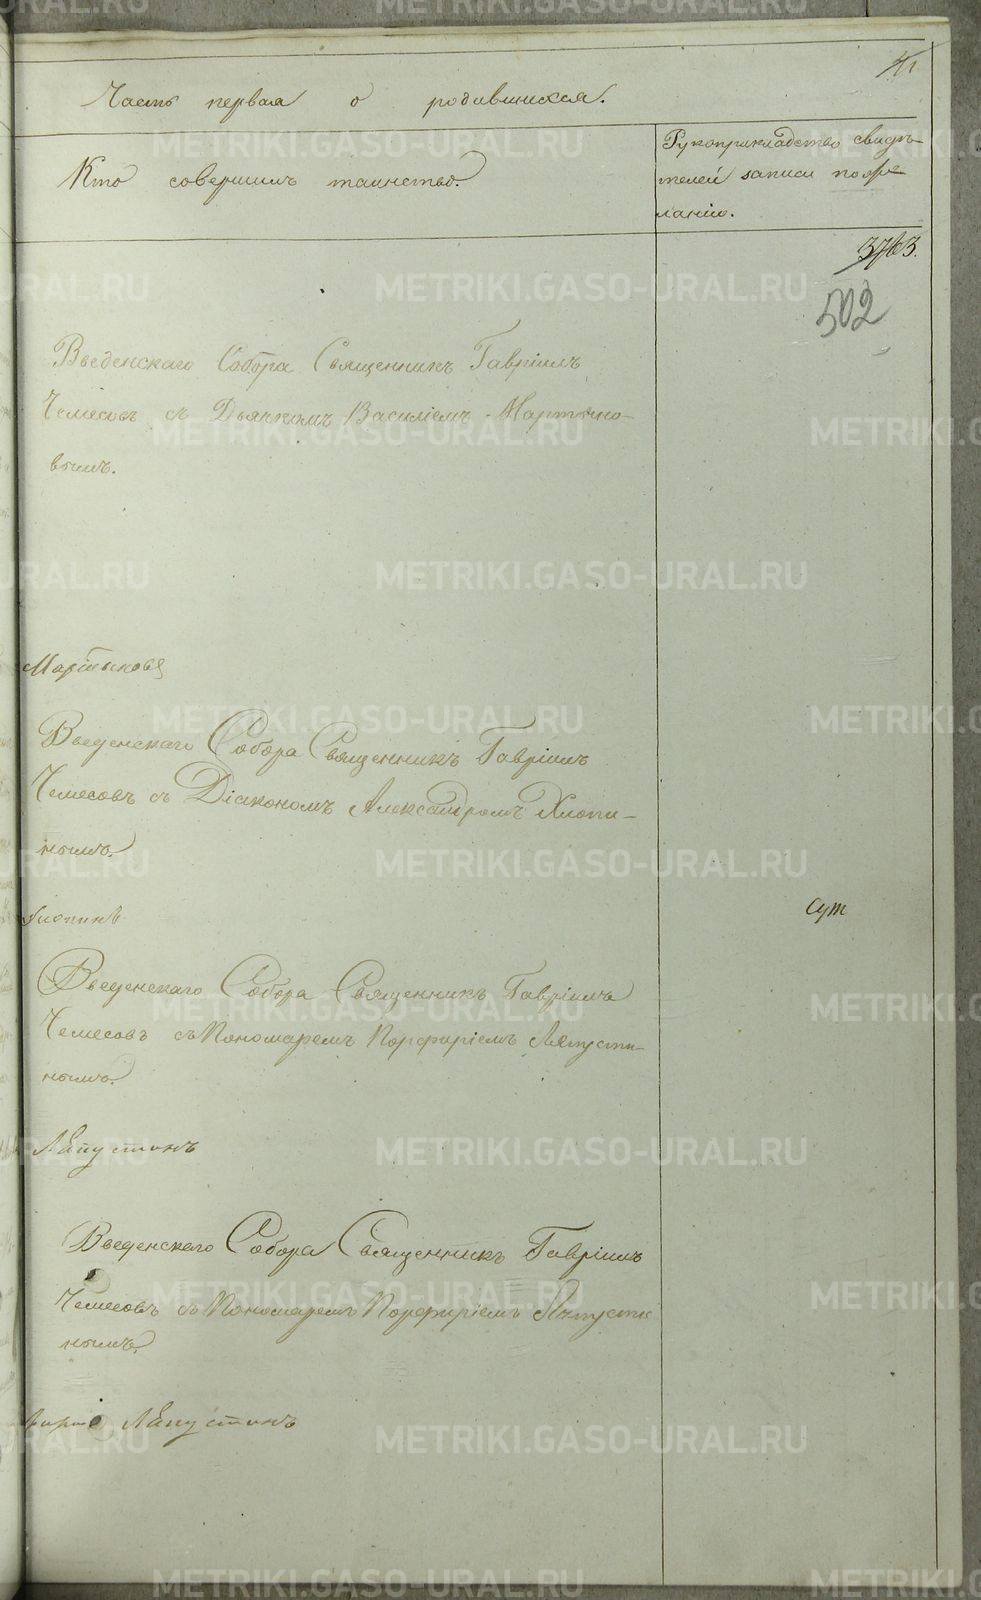 Часть первая о родившихся.
Кто совершилъ таинство.
Рукоприкладство свидѣ-
телей записи по же-
ланію.
502
Введенскаго Собора Священникъ Гавріилъ
Чемесовъ съ Дьячкомъ Василіемъ Мартыно-
вымъ.
Мартыновъ
Введенскаго Собора Священникъ Гавріилъ
Чемесовъ съ Діакономъ Александромъ Хлопи-
нымъ.
Хлопинъ
Введенскаго Собора Священникъ Гавріилъ
Чемесовъ съ Пономаремъ Порфиріемъ Лапусти-
нымъ.
Лапустинъ
Введенскаго Собора Священникъ Гавріилъ
Чемесовъ съ Пономаремъ Порфиріемъ Лапусти
нымъ.
Лапустинъ
METRIKI.GASO-URAL.RU